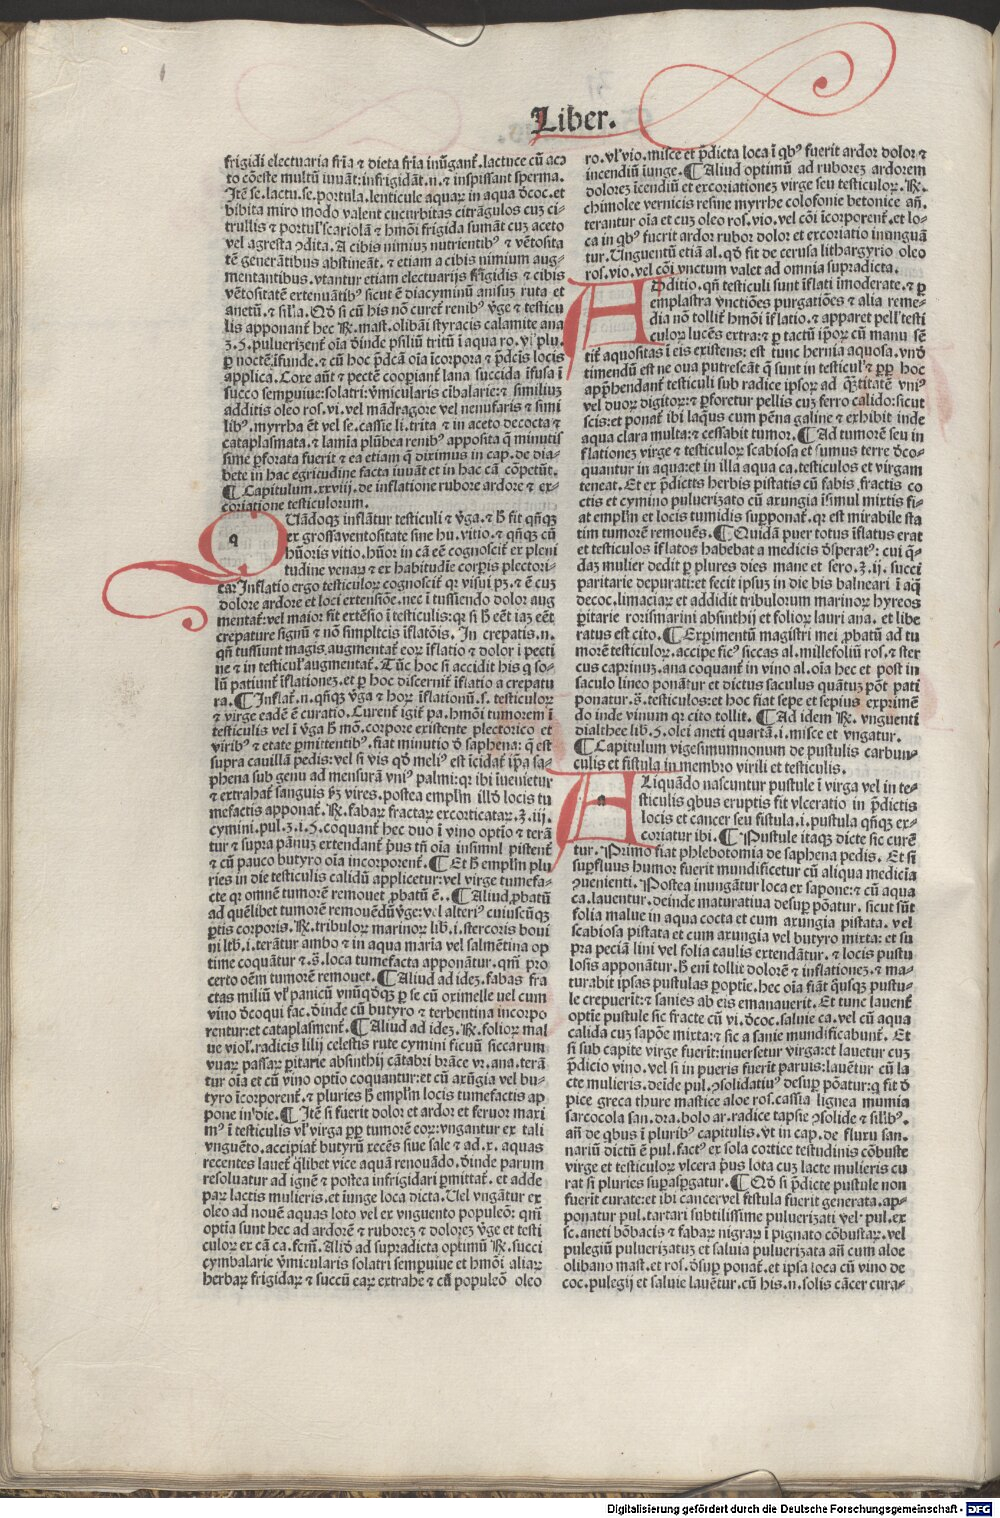 Liber.
frigidi electuaria fria ⁊ dieta fria inūgant̄. lactuce cū ace
to cōeste multū iuuāt: infrigidāt .n. ⁊ inspissant sperma.
Itē se. lactu. se. portula. lenticule aquar in aqua dcoc. et
bibita miro modo valent cucurbitas citrāgulos cuz ci⸗
trullis ⁊ portul' scariolā ⁊ hmōi frigida sumāt cuz aceto
vel agresta ꝯdita. A cibis nimium nutrientibꝰ ⁊ vētosita
tē generātibus abstineāt. ⁊ etiam a cibis nimium aug⸗
mentantibus. vtantur etiam electuarijs frigidis ⁊ cibis
vētositatē extenuātibꝰ sicut ē diacyminū anisuz ruta et
anetū ⁊ sil'ia. Qd si cū his nō curet̄ renibꝰ vge ⁊ testicu
lis apponant̄ hec ℞. mast. olibāi styracis calamite ana
ʒ.ß. pulverizent̄ oīa dinde psiliū tritū ī aqua ro. vl' plu.
ꝑ noctē ifunde. ⁊ cū hoc p̄dcā oīa icorpora ⁊ p̄dcis locis
applica. Coxe aūt ⁊ pectē coopiant̄ lana succida ifusa ī
succo sempuiue: solatri: vmicularis cibalarie: ⁊ similiuz
additis oleo ros. vi. vel mādragore vel nenufaris ⁊ simi
libꝰ. myrrha ēt vel se. cassie li. trita ⁊ in aceto decocta ⁊
cataplasmata. ⁊ lamia plūbea renibꝰ apposita q̄ minutis
sime ꝑforata fuerit ⁊ ea etiam q̄ diximus in cap. de dia⸗
bete in hac egritudine facta iuuāt et in hac cā cōpetūt.
¶ Capitulum .xxviij. de inflatione rubore ardore ⁊ ex⸗
coriatione testiculorum.
QUādoqz inflātur testiculi ⁊ vga. ⁊ h̄ fit qn̄qz
ex grossa ventositate sine hu. vitio. ⁊ qn̄qz cū
hūoris vitio. hūor in cā eē cognoscit̄ ex pleni
tudine venarꝝ ⁊ ex habitudie corpis plectori⸗
ca. Inflatio ergo testiculor cognoscit̄ qr visui pz. ⁊ ē cuz
dolore ardore et loci extensiōe. nec ī tussiendo dolor aug
mentat̄: vel maior fit extēsio ī testiculis: qr si h̄ eēt iaz eēt
crepature signū ⁊ nō simplicis iflatōis. In crepatis .n.
qn̄ tussiunt magis augmentat̄ eor iflatio ⁊ dolor i pecti
ne ⁊ in testicul' augmentat̄. Tūc hoc si accidit his q̄ so⸗
lū patiunt̄ iflationez. et ꝑ hoc discernit̄ iflatio a crepatu
ra. ¶ Inflat̄ .n. qn̄qz vga ⁊ hor iflationū .s. testiculor
⁊ virge eadē ē curatio. Curent̄ igit̄ pa. hmōi tumorem ī
testiculis vel ī vga h̄ mō. corpore existente plectorico et
viribꝰ ⁊ etate pmittentibꝰ. fiat minutio d saphena: q̄ est
supra cauillā pedis: vel si vis qd meliꝰ est icidat̄ ipa sa⸗
phena sub genu ad mensurā vniꝰ palmi: qr ibi iuenietur
⁊ extrahat̄ sanguis fꝫ vires. postea emplm illd locis tu
mefactis apponat̄. ℞. fabar fractar excorticatar .ʒ. iij.
cymini. pul. ʒ. i. ß. coquant̄ hec duo ī vino optio ⁊ terā
tur ⁊ supra pānuz extendant̄ pus tn̄ oīa insiml pistent̄
⁊ cū pauco butyro oīa incorporent̄. ¶ Et h̄ emplm plu
ries in die testiculis calidū applicetur: vel virge tumefa⸗
cte qr omnē tumorē remouet ꝓbatū ē. ¶ Aliud ꝓbatū
ad quēlibet tumorē remouēdū vge: vel alteriꝰ cuiuscūqz
ꝑtis corporis. ℞. tribulor marinor lib. i. stercoris boui
ni lib. i. terātur ambo ⁊ in aqua maria vel salmētina op
time coquātur ⁊ .s. loca tumefacta apponātur. qm̄ pro
certo oēm tumorē remouet. ¶ Aliud ad idez. fabas fra
ctas miliū vl' panicū vnūqdqz ꝑ se cū oximelle vel cum
vino dcoqui fac. dinde cū butyro ⁊ terbentina incorpo
rentur: et cataplasment̄. ¶ Aliud ad idez. ℞. folior mal
ue viol'. radicis lilij celestis rute cymini ficuū siccarum
vuar passar ꝑitarie absinthij cātabri brāce vr. ana. terā
tur oīa et cū vino optio coquantur: et cū axūgia vel bu⸗
tyro icorporent̄. ⁊ pluries h̄ emplm locis tumefactis ap
pone in die. ¶ Itē si fuerit dolor et ardor et feruor maxi
mꝰ ī testiculis vl' virga ꝑꝑ tumorē cor: vngantur ex tali
vnguēto. accipiat̄ butyrū recēs siue sale ⁊ ad .x. aquas
recentes lauet̄ q̄libet vice aquā renouādo. dinde parum
resoluatur ad ignē ⁊ postea infrigidari ꝑmittat̄. et adde
par lactis mulieris. et iunge loca dicta. Uel vngātur ex
oleo ad nouē aquas loto vel ex vnguento populeō: qm̄
optia sunt hec ad ardorē ⁊ ruborez ⁊ dolorez vge et testi
culor ex cā ca. fcm̄. Aliud ad supradicta optimū ℞. succi
cymbalarie vmicularis solatri sempuiue et hmōi aliar
herbar frigidar ⁊ succū ear extrahe ⁊ cū populeō oleo
ro. vl' vio. misce et p̄dicta loca ī qbꝰ fuerit ardor dolor ⁊
incendiū iunge. ¶ Aliud optimū ad ruborez ardorem
dolorez icendiū et excoriationez virge seu testiculor. ℞.
chimolee vernicis resine myrrhe colofonie betonice an̄.
terantur oīa et cuz oleo ros. vio. vel cōi icorporent̄. et lo⸗
ca in qbꝰ fuerit ardor rubor dolor et excoriatio inunguā
tur. Unguentū etiā al. qd fit de cerusa lithargyrio oleo
ros. vio. vel cōi vnctum valet ad omnia supradicta.
ADditio. qn̄ testiculi sunt iflati imoderate. ⁊ ꝑ
emplastra vnctiōes purgatiōes ⁊ alia reme⸗
dia nō tollit̄ hmōi iflatio. ⁊ apparet pell' testi
culor lucēs extra: ⁊ ꝑ tactū ipor cū manu sē
tit̄ aquositas ī eis existens: est tunc hernia aquosa. vnd
timendū est ne oua putrescāt q̄ sunt in testicul' ⁊ ꝑꝑ hoc
apphendant̄ testiculi sub radice ipsor ad qtitatē vniꝰ
vel duor digitor: ⁊ ꝑforetur pellis cuz ferro calido: sicut
scis: et ponat̄ ibi laqus cum pēna galine ⁊ exhibit inde
aqua clara multa: ⁊ cessabit tumor. ¶ Ad tumorē seu in
flationez virge ⁊ testiculor scabiosa et fumus terre dco⸗
quantur in aqua: et in illa aqua ca. testiculos et virgam
teneat. Et ex p̄dictis herbis pistatis cū fabis fractis co
ctis et cymino pulverizato cū axungia isimul mixtis fi⸗
at emplm et locis tumidis supponat̄. qr est mirabile sta
tim tumorē remouēs. ¶ Quidā puer totus iflatus erat
et testiculos iflatos habebat a medicis dsperatꝰ: cui q̄⸗
daz mulier dedit ꝑ plures dies mane et sero .ʒ. ij. succi
paritarie depurati: et fecit ipsuz in die bis balneari ī aq̄
decoc. limaciar et addidit tribulorum marinor hyreos
pitarie rorismarini absinthij et folior lauri ana. et libe
ratus est cito. ¶ Expimentū magistri mei ꝓbatū ad tu
morē testiculor. accipe ficꝰ siccas al. millefoliū ros. ⁊ ster
cus caprinuz. ana coquant̄ in vino al. oīa hec et post in
saculo lineo ponātur et dictus saculus quātuz pōt pati
ponatur .s. testiculos: et hoc fiat sepe et sepius exprimē
do inde vinum qr cito tollit. ¶ Ad idem ℞. vnguenti
dialthee lib. ß. olei aneti quartā .i. misce et vngatur.
¶ Capitulum vigesimumnonum de pustulis carbun⸗
culis et fistula in membro virili et testiculis.
ALiquādo nascuntur pustule ī virga vel in te⸗
sticulis qbus eruptis fit vlceratio in p̄dictis
locis et cancer seu fistula .i. pustula qn̄qz ex⸗
coriatur ibi. ¶ Pustule itaqz dicte sic curē
tur. Primo fiat phlebotomia de saphena pedis. Et si
supfluus humor fuerit mundificetur cū aliqua medicīa
ꝯuenienti. Postea inungātur loca ex sapone: ⁊ cū aqua
ca. lauentur. deinde maturatiua desup pōatur. sicut sūt
folia malue in aqua cocta et cum axungia pistata. vel
scabiosa pistata et cum axungia vel butyro mixta: et su
pra peciā lini vel folia caulis extendātur. ⁊ locis pustu
losis apponātur. h̄ eni tollit dolorē ⁊ inflationez. ⁊ ma⸗
turabit ipsas pustulas ꝓptie. hec oīa fiāt qusqz pustu⸗
le crepuerit: ⁊ sanies ab eis emanauerit. Et tunc lauent̄
optie pustule sic fracte cū vi. dcoc. saluie ca. vel cū aqua
calida cuz sapōe mixta: ⁊ sic a sanie mundificabunt̄. Et
si sub capite virge fuerit: inuersetur virga: et lauetur cuz
p̄dicio vino. vel si in pueris fuerit paruis: lauētur cū la
cte mulieris. deide pul. ꝯsolidatiuꝰ desup pōatur: q̄ fit d
pice greca thure mastice aloe ros. cassia lignea mumia
sarcocola san. dra. bolo ar. radice tapsie ꝯsolide ⁊ sil'ibꝰ.
an̄ de qbus ī pluribꝰ capitulis. vt in cap. de fluxu san.
nariū dictū ē pul. factꝰ ex sola cortice testudinis cōbuste
virge et testiculor vlcera pus lota cuz lacte mulieris cu
rat si pluries supaspgatur. ¶ Qd si p̄dicte pustule non
fuerit curate: et ibi cancer vel fistula fuerit generata. ap⸗
ponatur pul. tartari subtilissime pulverizati vel pul. ex
sc. aneti bōbacis ⁊ fabar nigrar i pignato cōbustar. vel
pulegiū pulverizatuz et saluia pulverizata an̄ cum aloe
olibano mast. et ros. dsup ponat̄. et ipsa loca cū vino de
coc. pulegij et saluie lauētur. cū his .n. solis cācer cura⸗
Digitalisierung gefördert durch die Deutsche Forschungsgemeinschaft - DFG